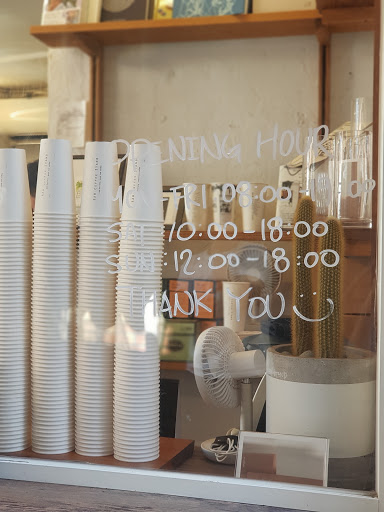 OPENING HOUR
MON-FRI 08:00
SAT 10:00-18:00
SUN 12:00-18:00
THANK YOU :)